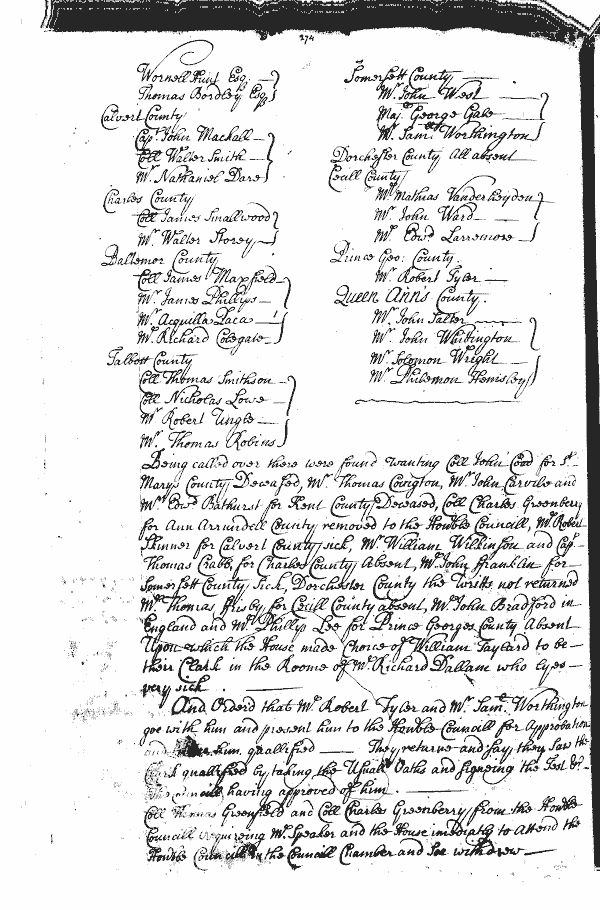 274
Wornell Hunt Esq.
Thomas Bordley Esq
Calvert County
Capt. John Mackall
Coll Walter Smith
Mr. Nathaniel Dare
Charles County
Coll James Smallwood
Mr. Walter Storey
Baltemor County
Coll James Maxfield
Mr. James Phillips
Mr. Acquilla Paca
Mr. Richard Colegate
Talbott County
Coll Thomas Smithson
Coll Nicholas Lowe
Mr Robert Ungle
Mr. Thomas Robins
Somersett County
Mr. John West
Maj. George Gale
Mr. Sam.ll Worthington
Dorchester County All absent
Cecill County
Mr Mathias Vanderheyden
Mr. John Ward
Mr. Edwd. Larremore
Prince Geo: County.
Mr. Robert Tyler
Queen Ann's County.
Mr. John Salter
Mr. John Whitington
Mr. Solomon Wright
Mr. Philemon Hemsley
Being called over there were found wanting Coll John Cood for St.
Marys County Deceased, Mr. Thomas Covigton, Mr. John Carvile and
Mr. Edwd. Bathurst for Kent County Deceased, Coll Charles Greenberry
for Ann Arrundell County removed to the Honble Councill, Mr. Robert
Skinner for Calvert County sick, Mr. William Wilkinson and Capt.
Thomas Crabb, for Charles County Absent, Mr. John Franklin for
Somersett County Sick, Dorchester County the Writts not returned
Mr. Thomas Frisby for Cecill County absent, Mr. John Bradford in
England and Mr. Phillip Lee for Prince Georges County Absent
Upon which the House made Choice of William Taylard to be
their Clark in the Roome of Mr. Richard Dallam who lyes
very sick
And Orderd that Mr. Robert Tyler and Mr. Sam.ll Worthington
goe with him and present him to the Honble Councill for Approbation
and him quallified They returne and say they saw the
Clark quallified by taking the Usuall Oaths and signeing the Test &c.
The Councill having approved of him.
Coll Thomas Greenfield and Coll Charles Greenberry from the Honble
Councill requireing Mr. Speaker and the House imediatly to Attend the
Honble Councill in the Councill Chamber and soe withdrew